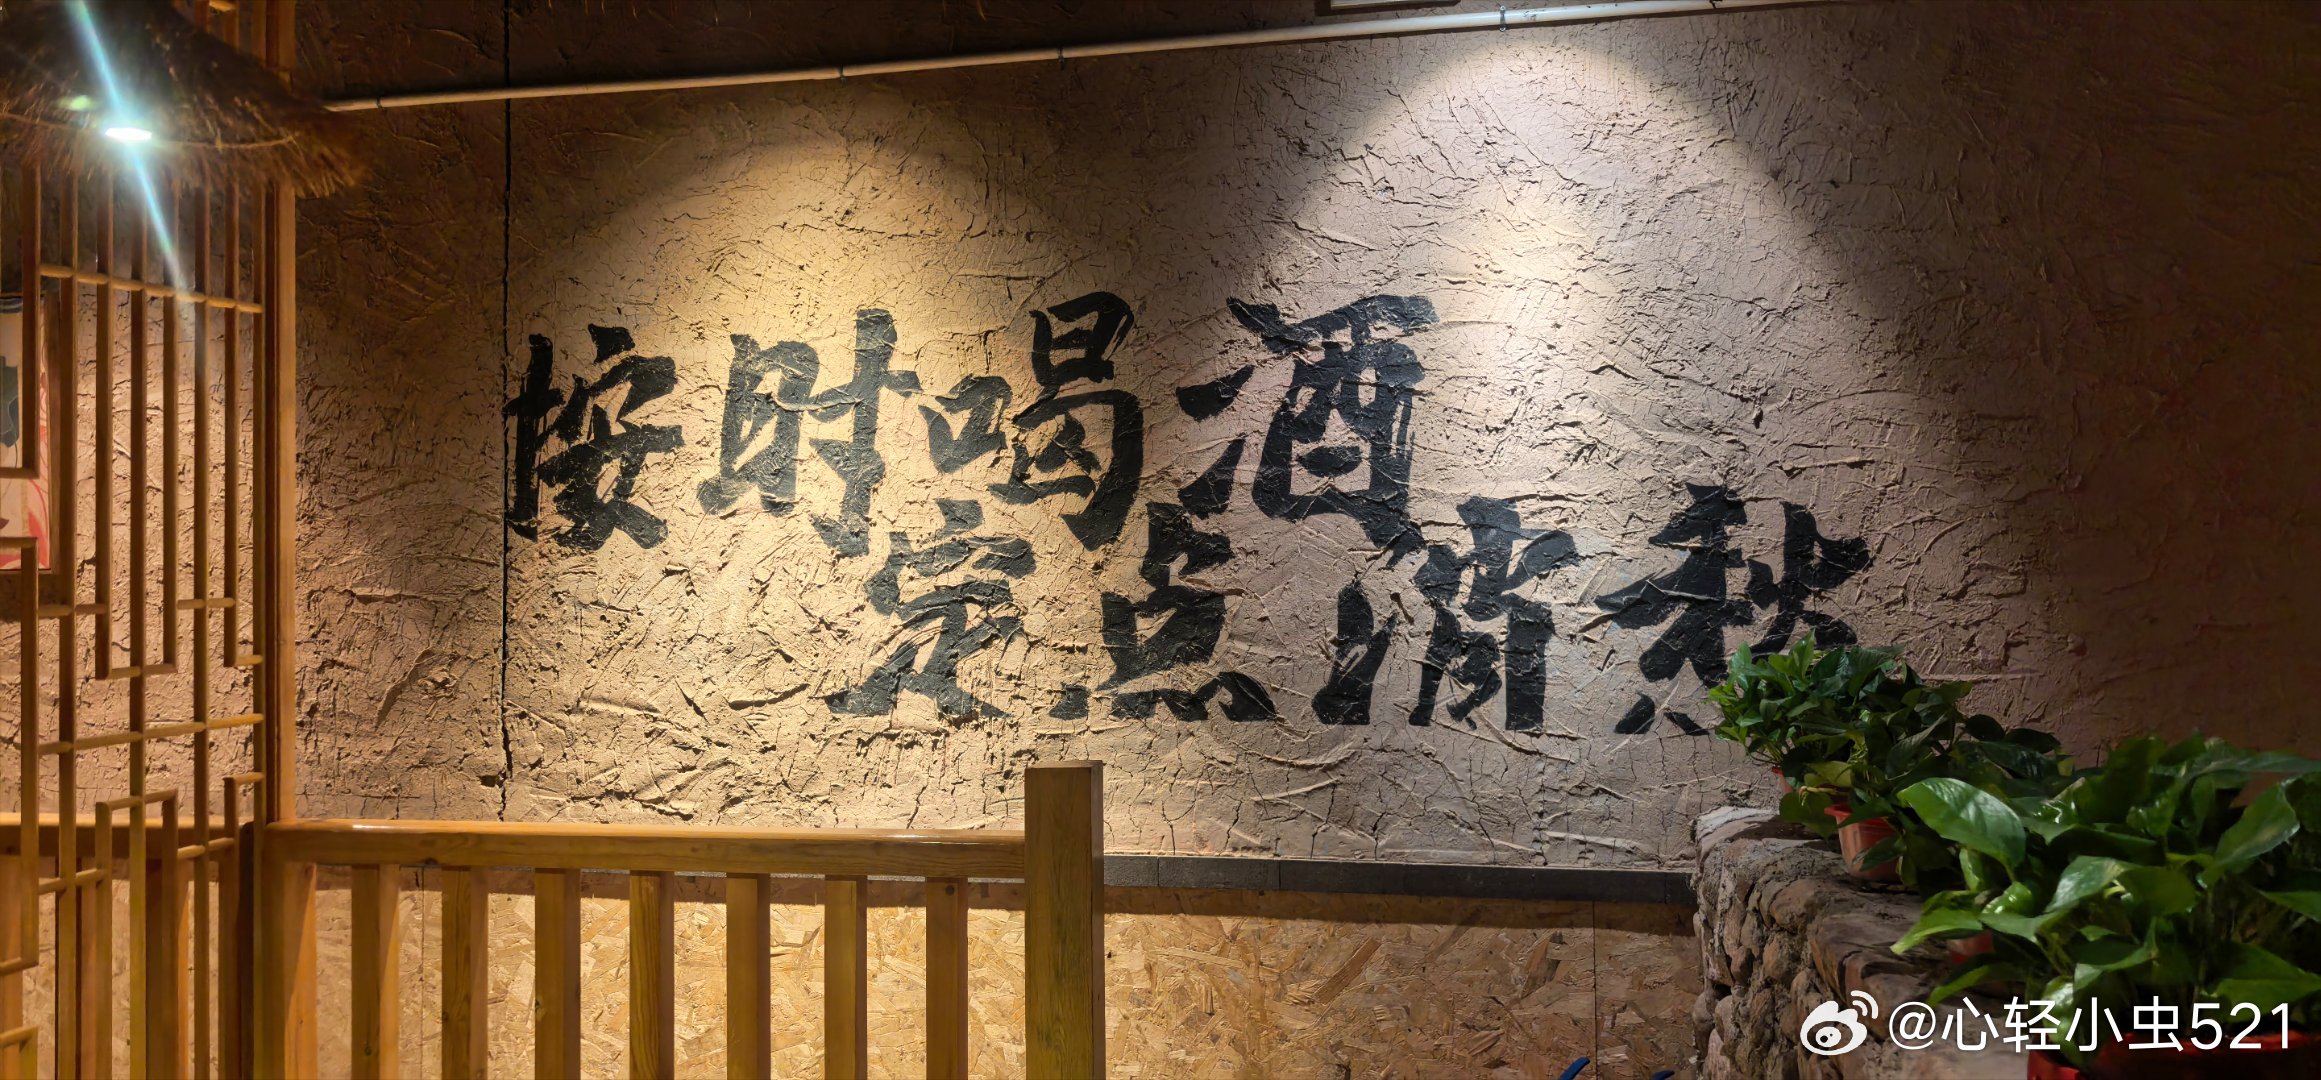 按时喝酒
定点消愁
@心轻小虫521